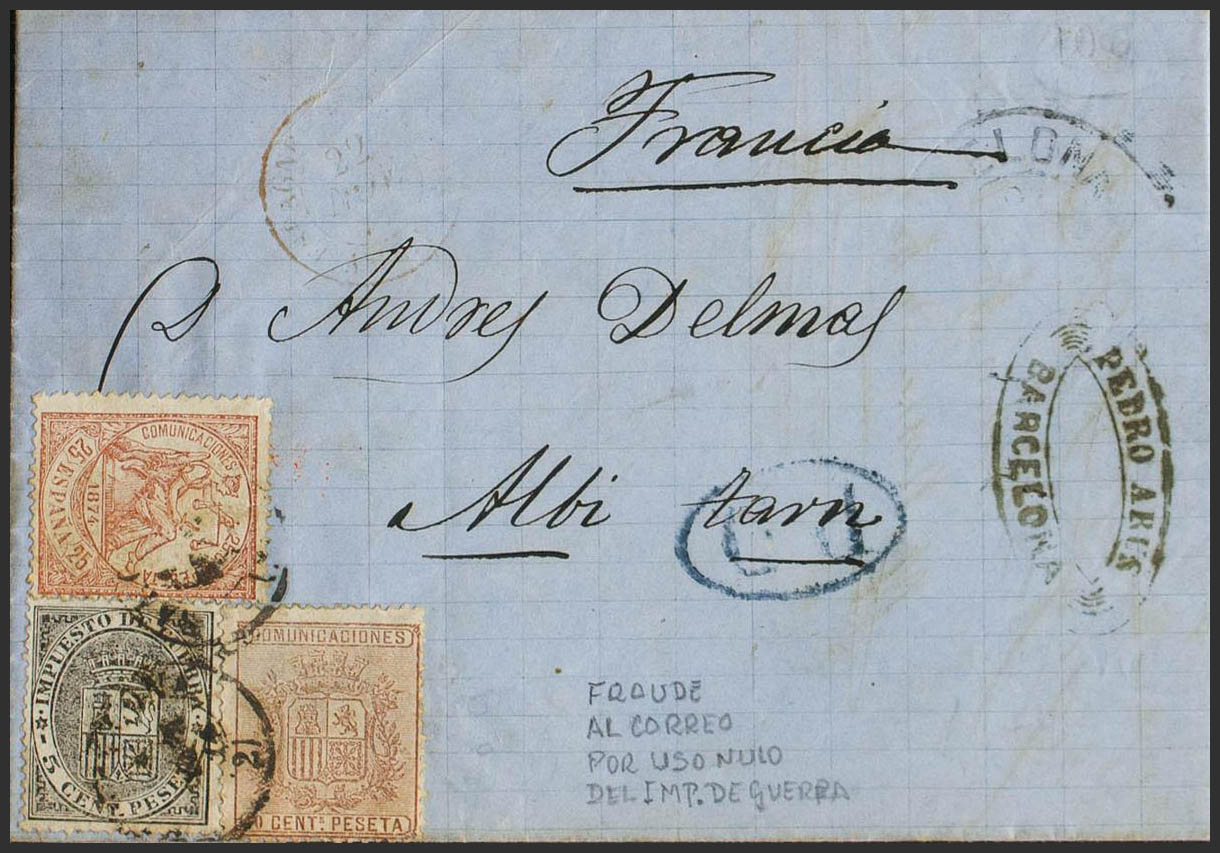 Francia
22
LONA
Andres Delmas
PEDRO ARUS
BARCELONA
a Albi tarn
P.D
COMUNICACIONES
25 CS
ESPAÑA
1874
IMPUESTO DE GUERRA
5 CENT. PESETA
21
COMUNICACIONES
0 CENTS PESETA
FRAUDE
AL CORREO
POR USO NULO
DEL IMP. DE GUERRA